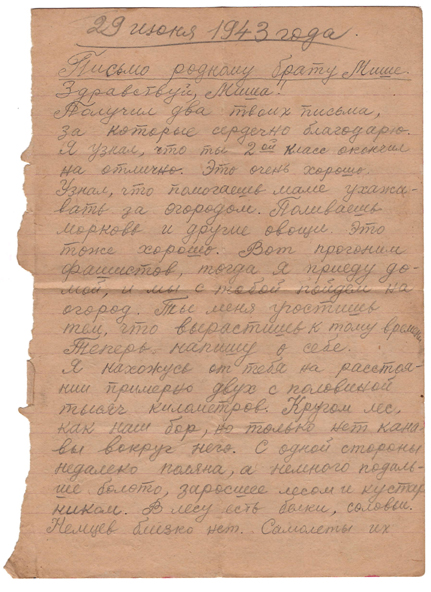 29 июня 1943 года.
Письмо родному брату Мише.
Здравствуй, Миша!
Получил два твоих письма,
за которые сердечно благодарю.
Я узнал, что ты 2ой класс окончил
на отлично. Это очень хорошо.
Узнал, что помогаешь маме ухажи-
вать за огородом. Поливаешь
морковь и другие овощи. Это
тоже хорошо. Вот прогоним
фашистов, тогда я приеду до-
мой, и мы с тобой пойдем на
огород. Ты меня угостишь
тем, что вырастишь к тому времени.
Теперь напишу о себе.
Я нахожусь от тебя на расстоя-
нии примерно двух с половиной
тысяч километров. Кругом лес,
как наш бор, но только нет кана-
вы вокруг него. С одной стороны
недалеко поляна, а немного подаль-
ше болото, заросшее лесом и кустар-
ником. В лесу есть белки, соловьи.
Немцев близко нет. Самолеты их